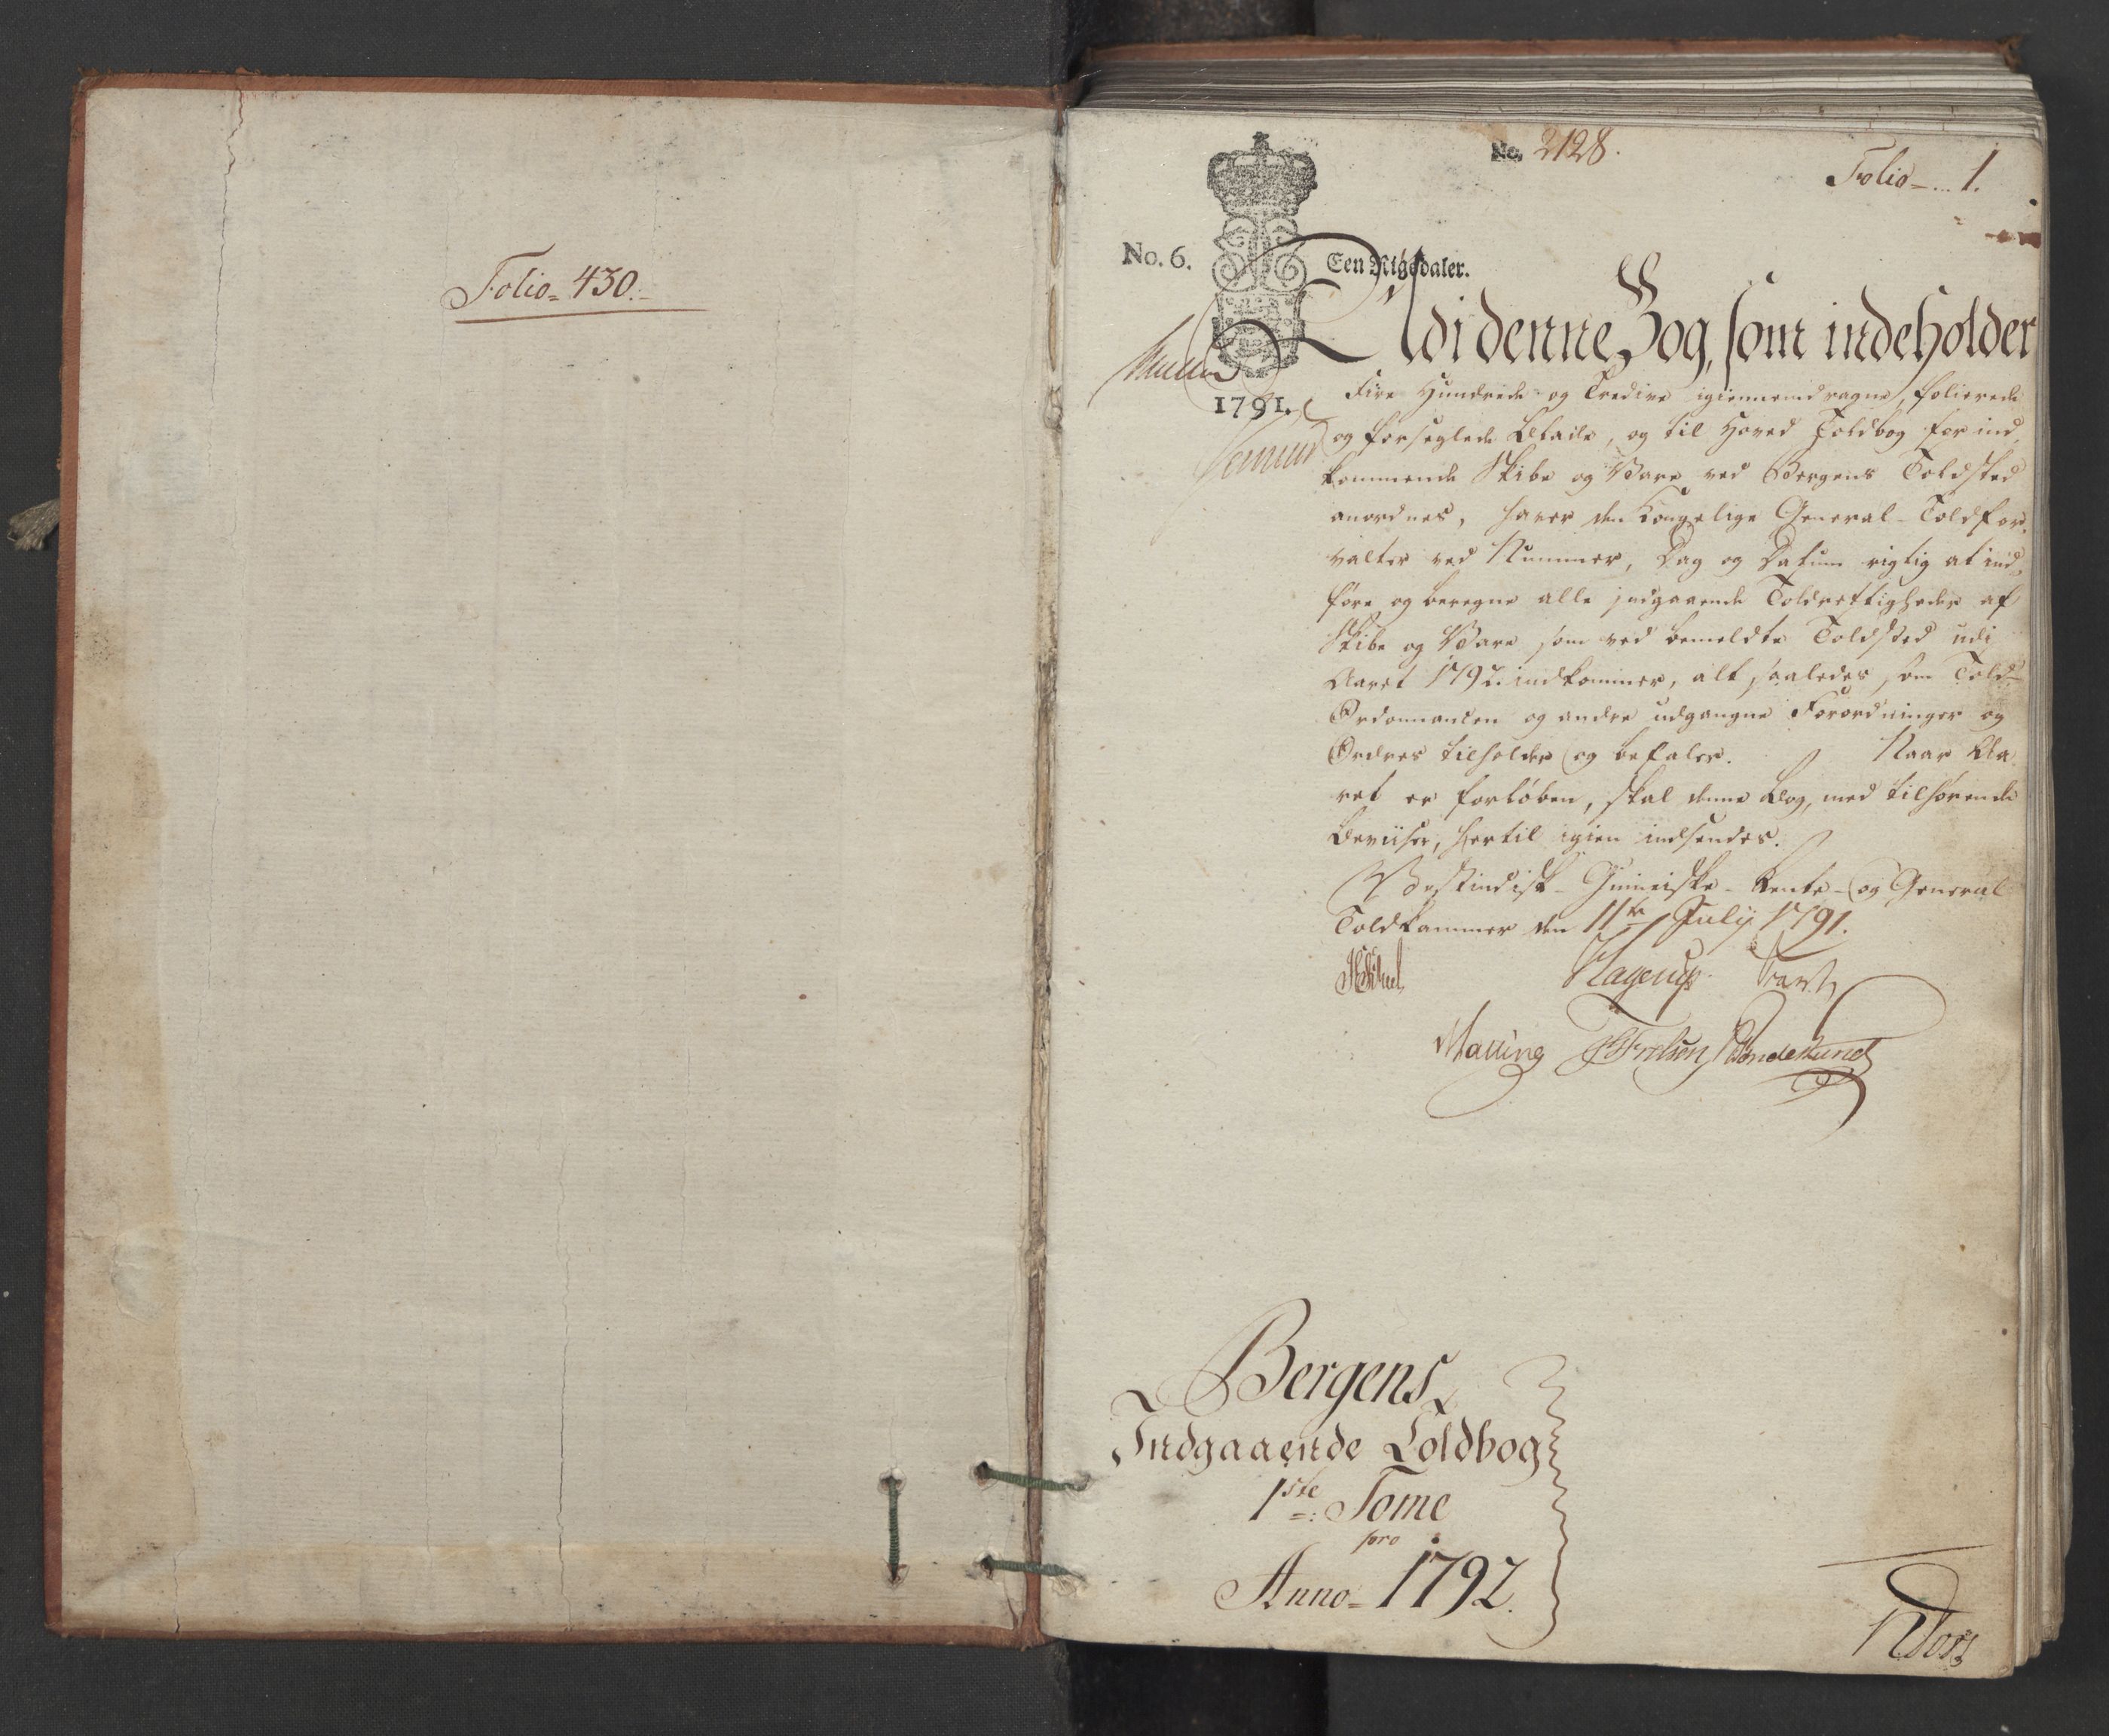 Folio= 430.
No. 2128.
Folio 1.
No. 6.
Een Rigsdaler.
1791.
Udi denne Bog, som indeholder
Fire Hundrede og Tredive igiennemdragne, folierede
og forseglede Blade, og til Hoved Toldbog for ind¬
kommende Skibe og Vare ved Bergens Toldsted
anordnes, haver den Kongelige General-Toldfor¬
valter ved Nummer, Dag og Datum rigtig at ind¬
føre og beregne alle indgaaende Toldrettigheder af
Skibe og Vare som ved bemeldte Toldsted udi
Aaret 1792 indkommer, alt saaledes som Told-
Ordonnancen og andre udgangne Forordninger og
Ordres tilholder og befaler. Naar Aa¬
ret er forløben, skal denne Bog, med tilhørende
Beviiser, hertil igien indsendes.
Vestindisk-Guineiske-Rente- og General
Toldkammer den 11te July 1791.
Hagerup
Bergens
Indgaaende Toldbog
1ste Tome
pro
Anno= 1792.